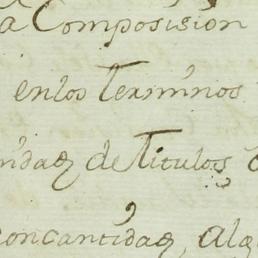 a Composision
en los Terminos
ndad de Titulos
con cantidad, alg